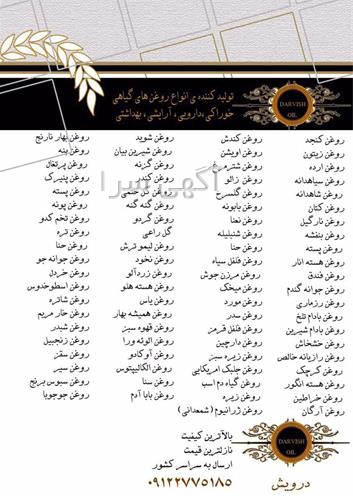 تولید کننده ی انواع روغن های گیاهی
خوراکی،دارویی، آرایشی، بهداشتی
DARVISH
OIL
روغن کنجد
روغن زیتون
روغن ارده
روغن سیاهدانه
روغن شاهدانه
روغن کتان
روغن نارگیل
روغن بنفشه
روغن پسته
روغن هسته انار
روغن فندق
روغن جوانه گندم
روغن رزماری
روغن بادام تلخ
روغن بادام شیرین
روغن خشخاش
روغن رازیانه خالص
روغن کرچک
روغن هسته انگور
روغن خراطین
روغن آرگان
روغن کندش
روغن اویشن
روغن شترمرغ
روغن زالو
روغن گلسرخ
روغن بابونه
روغن نعنا
روغن شنبلیله
روغن حنا
روغن فلفل سیاه
روغن مرزن جوش
روغن میخک
روغن مورد
روغن سدر
روغن فلفل قرمز
روغن دارچین
روغن زیره سبز
روغن جلبک امریکایی
روغن گیاه دم اسب
روغن ژرانیوم (شمعدانی)
روغن شوید
روغن شیرین بیان
روغن گزنه
روغن کندر
روغن گل ختمی
روغن گنه گنه
روغن گردو
گل راعی
روغن لیمو ترش
روغن نخود
روغن زردآلو
روغن هسته هلو
روغن یاس
روغن همیشه بهار
روغن قهوه سبز
روغن الوئه ورا
روغن آوکادو
روغن الکالیپتوس
روغن سنا
روغن بابا آدم
روغن بهار نارنج
روغن پنبه
روغن پرتغال
روغن پنیرک
روغن پسته
روغن پونه
روغن تخم کدو
روغن تره
روغن حنا
روغن جوانه جو
روغن خردل
روغن اسطوخدوس
روغن شاتره
روغن خار مریم
روغن شبدر
روغن زنجبیل
روغن سقز
روغن سیر
روغن سبوس برنج
روغن جوجوبا
آگهی سرا
بالاترین کیفیت
نازلترین قیمت
ارسال به سراسر کشور
۰۹۱۲۲۷۷۵۱۸۵
DARVISH
OIL
درویش